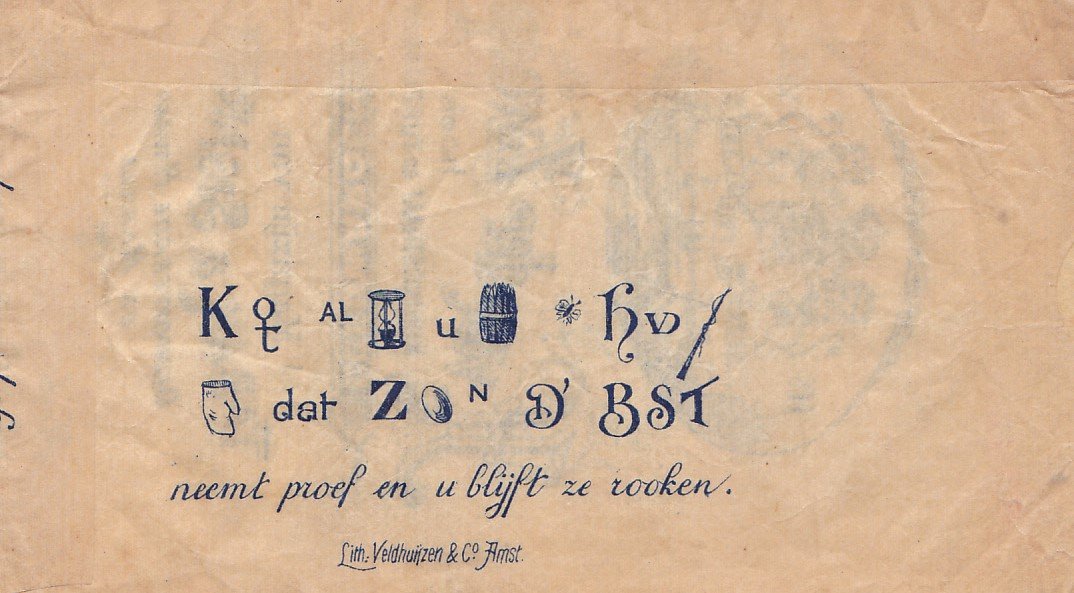 K AL u Hv
dat Z N D' BST
neemt proef en u blijft ze rooken.
Lith: Veldhuijzen & Co Amst.